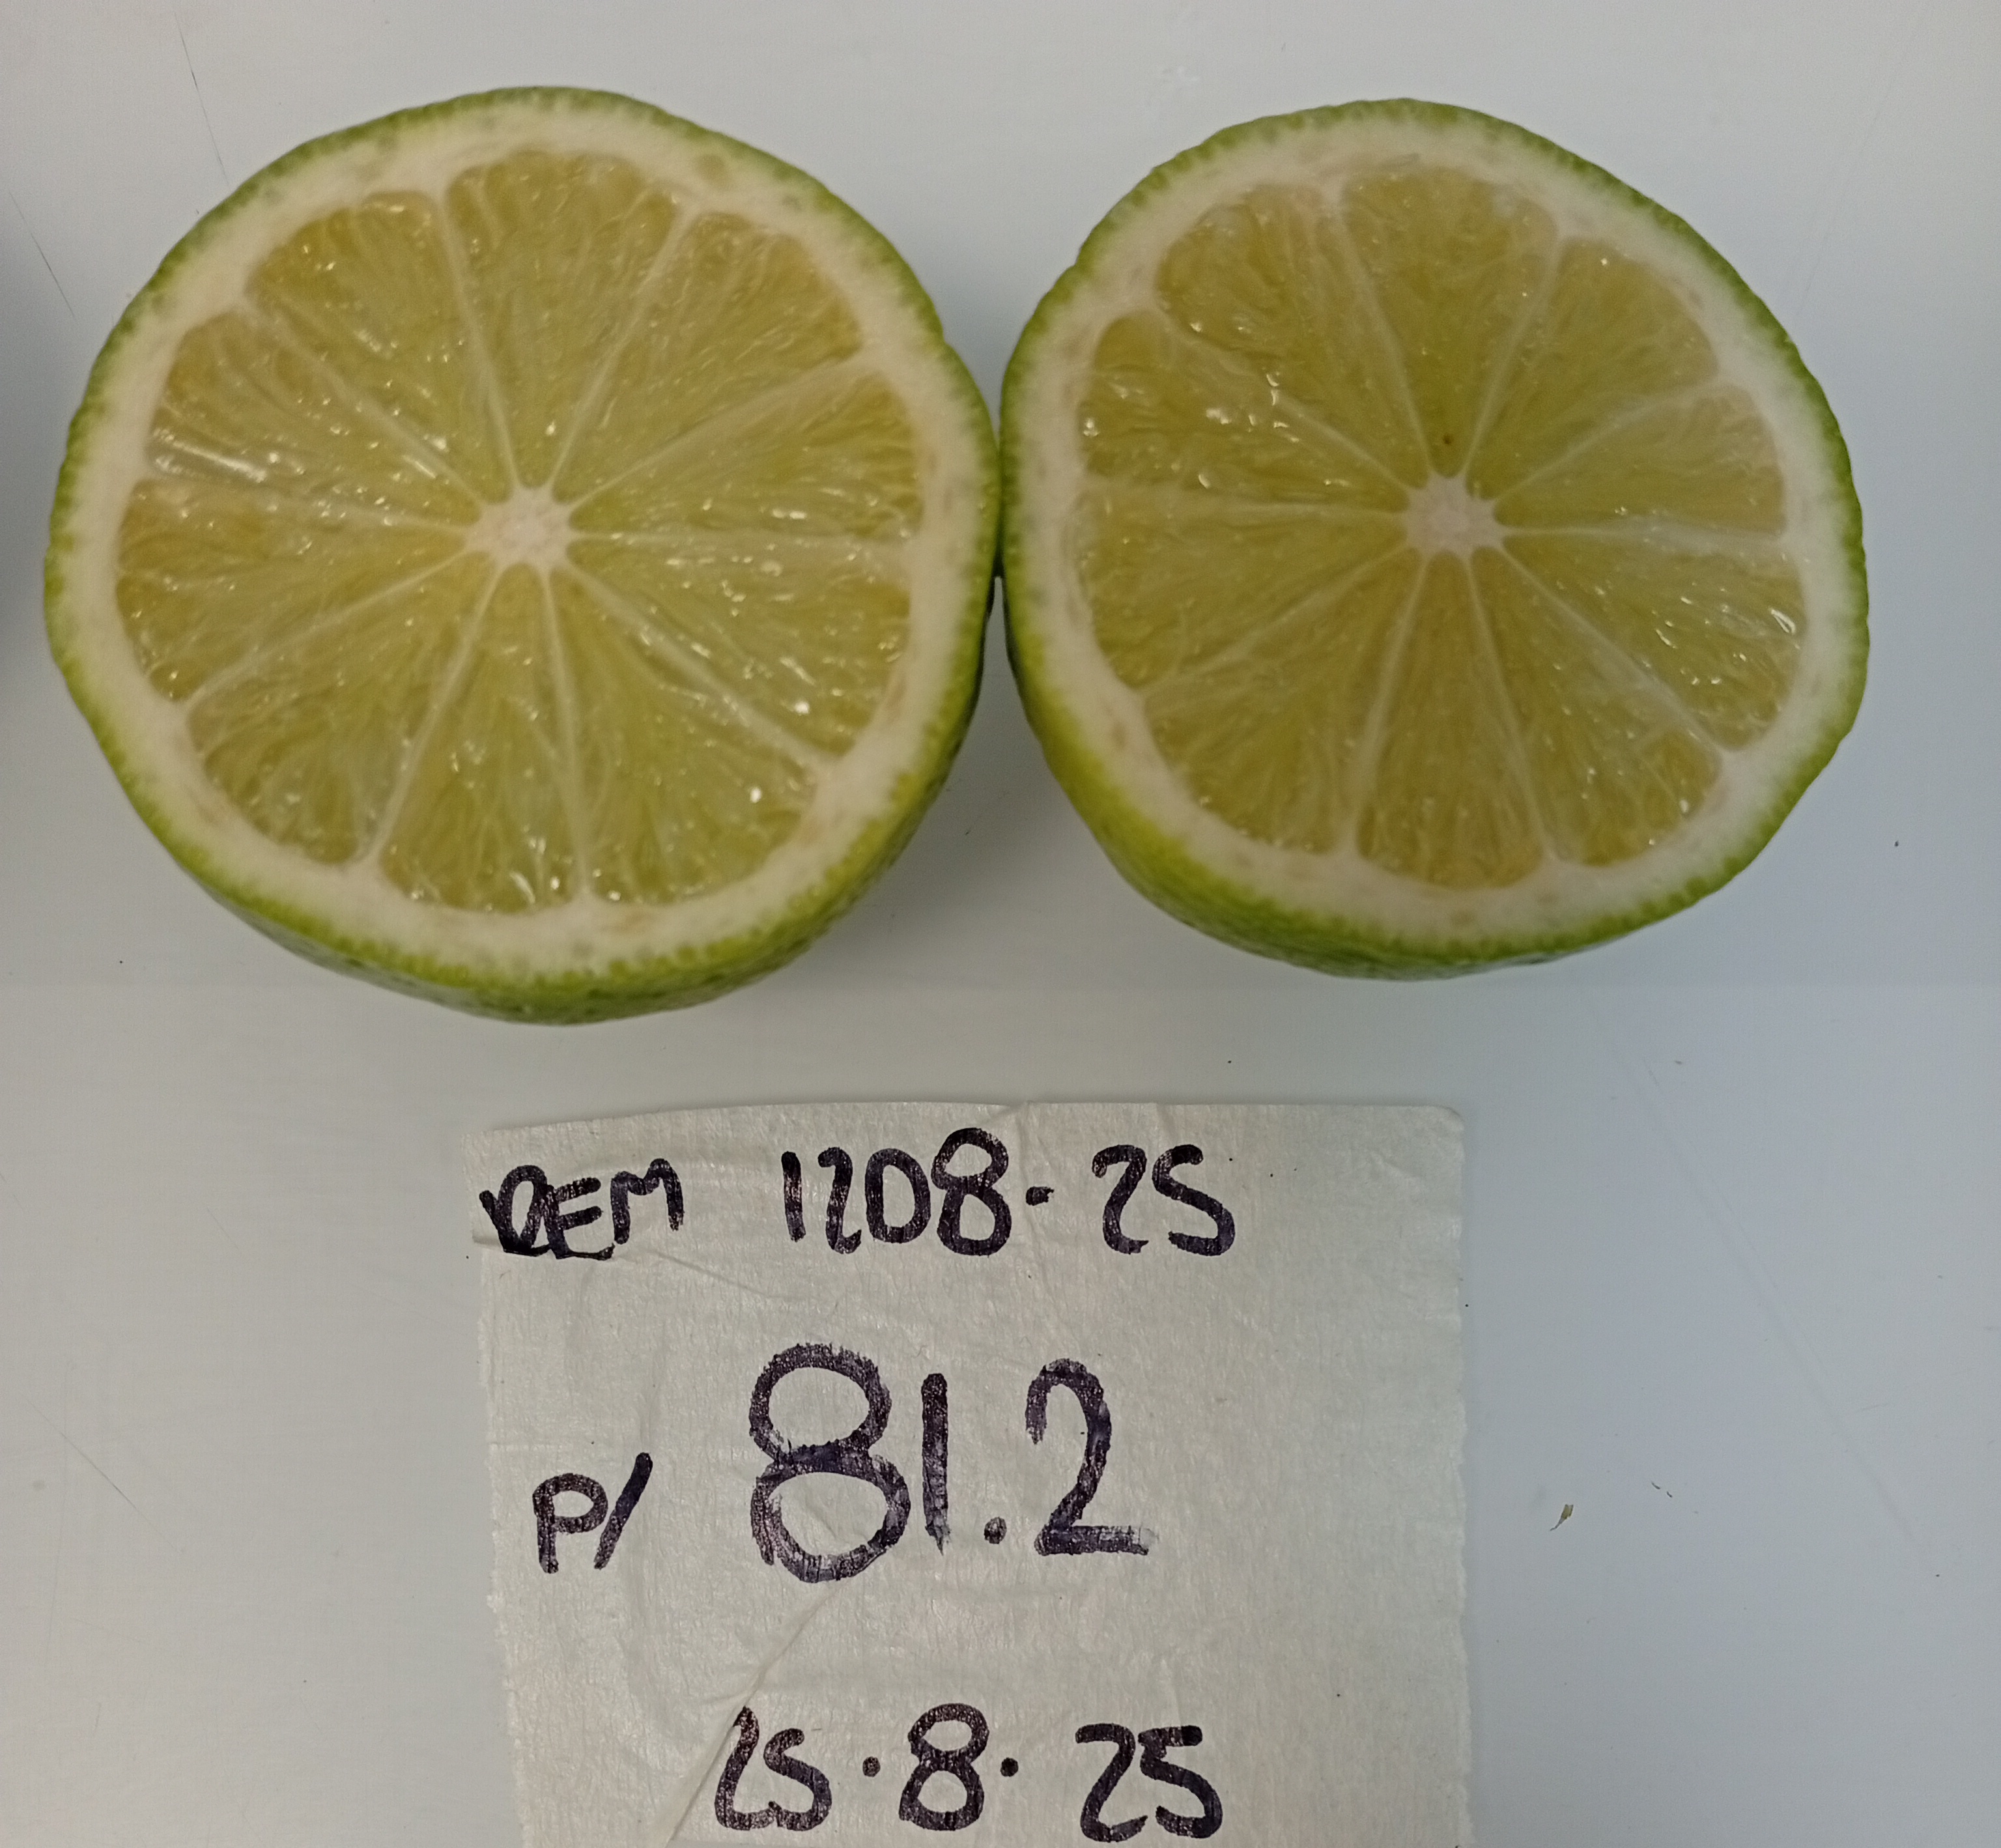 DEM 1208-25
P/ 81.2
25.8.25